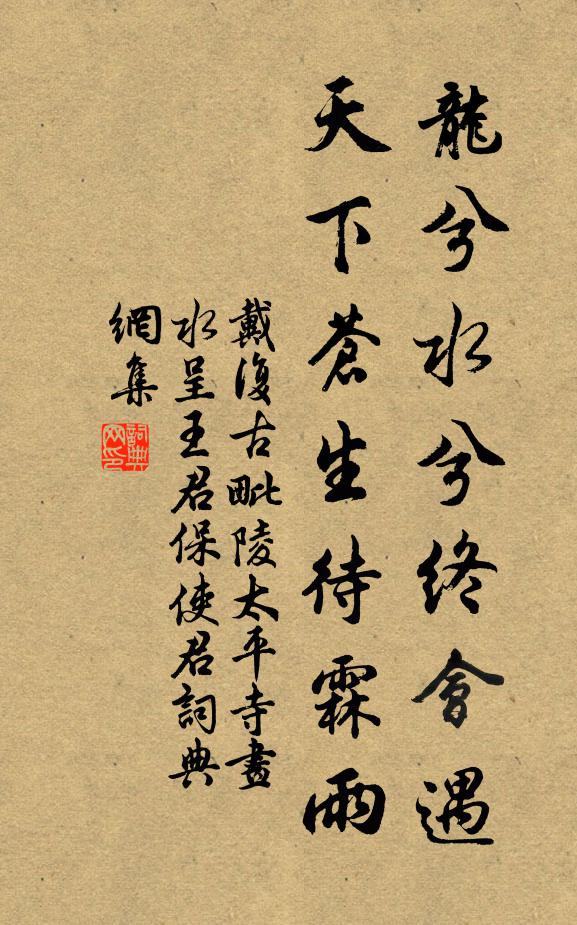 龍兮水兮終會遇
天下蒼生待霖雨
戴復古毗陵太平寺畫
水呈王君保使君詞典
網集
詞典
网印